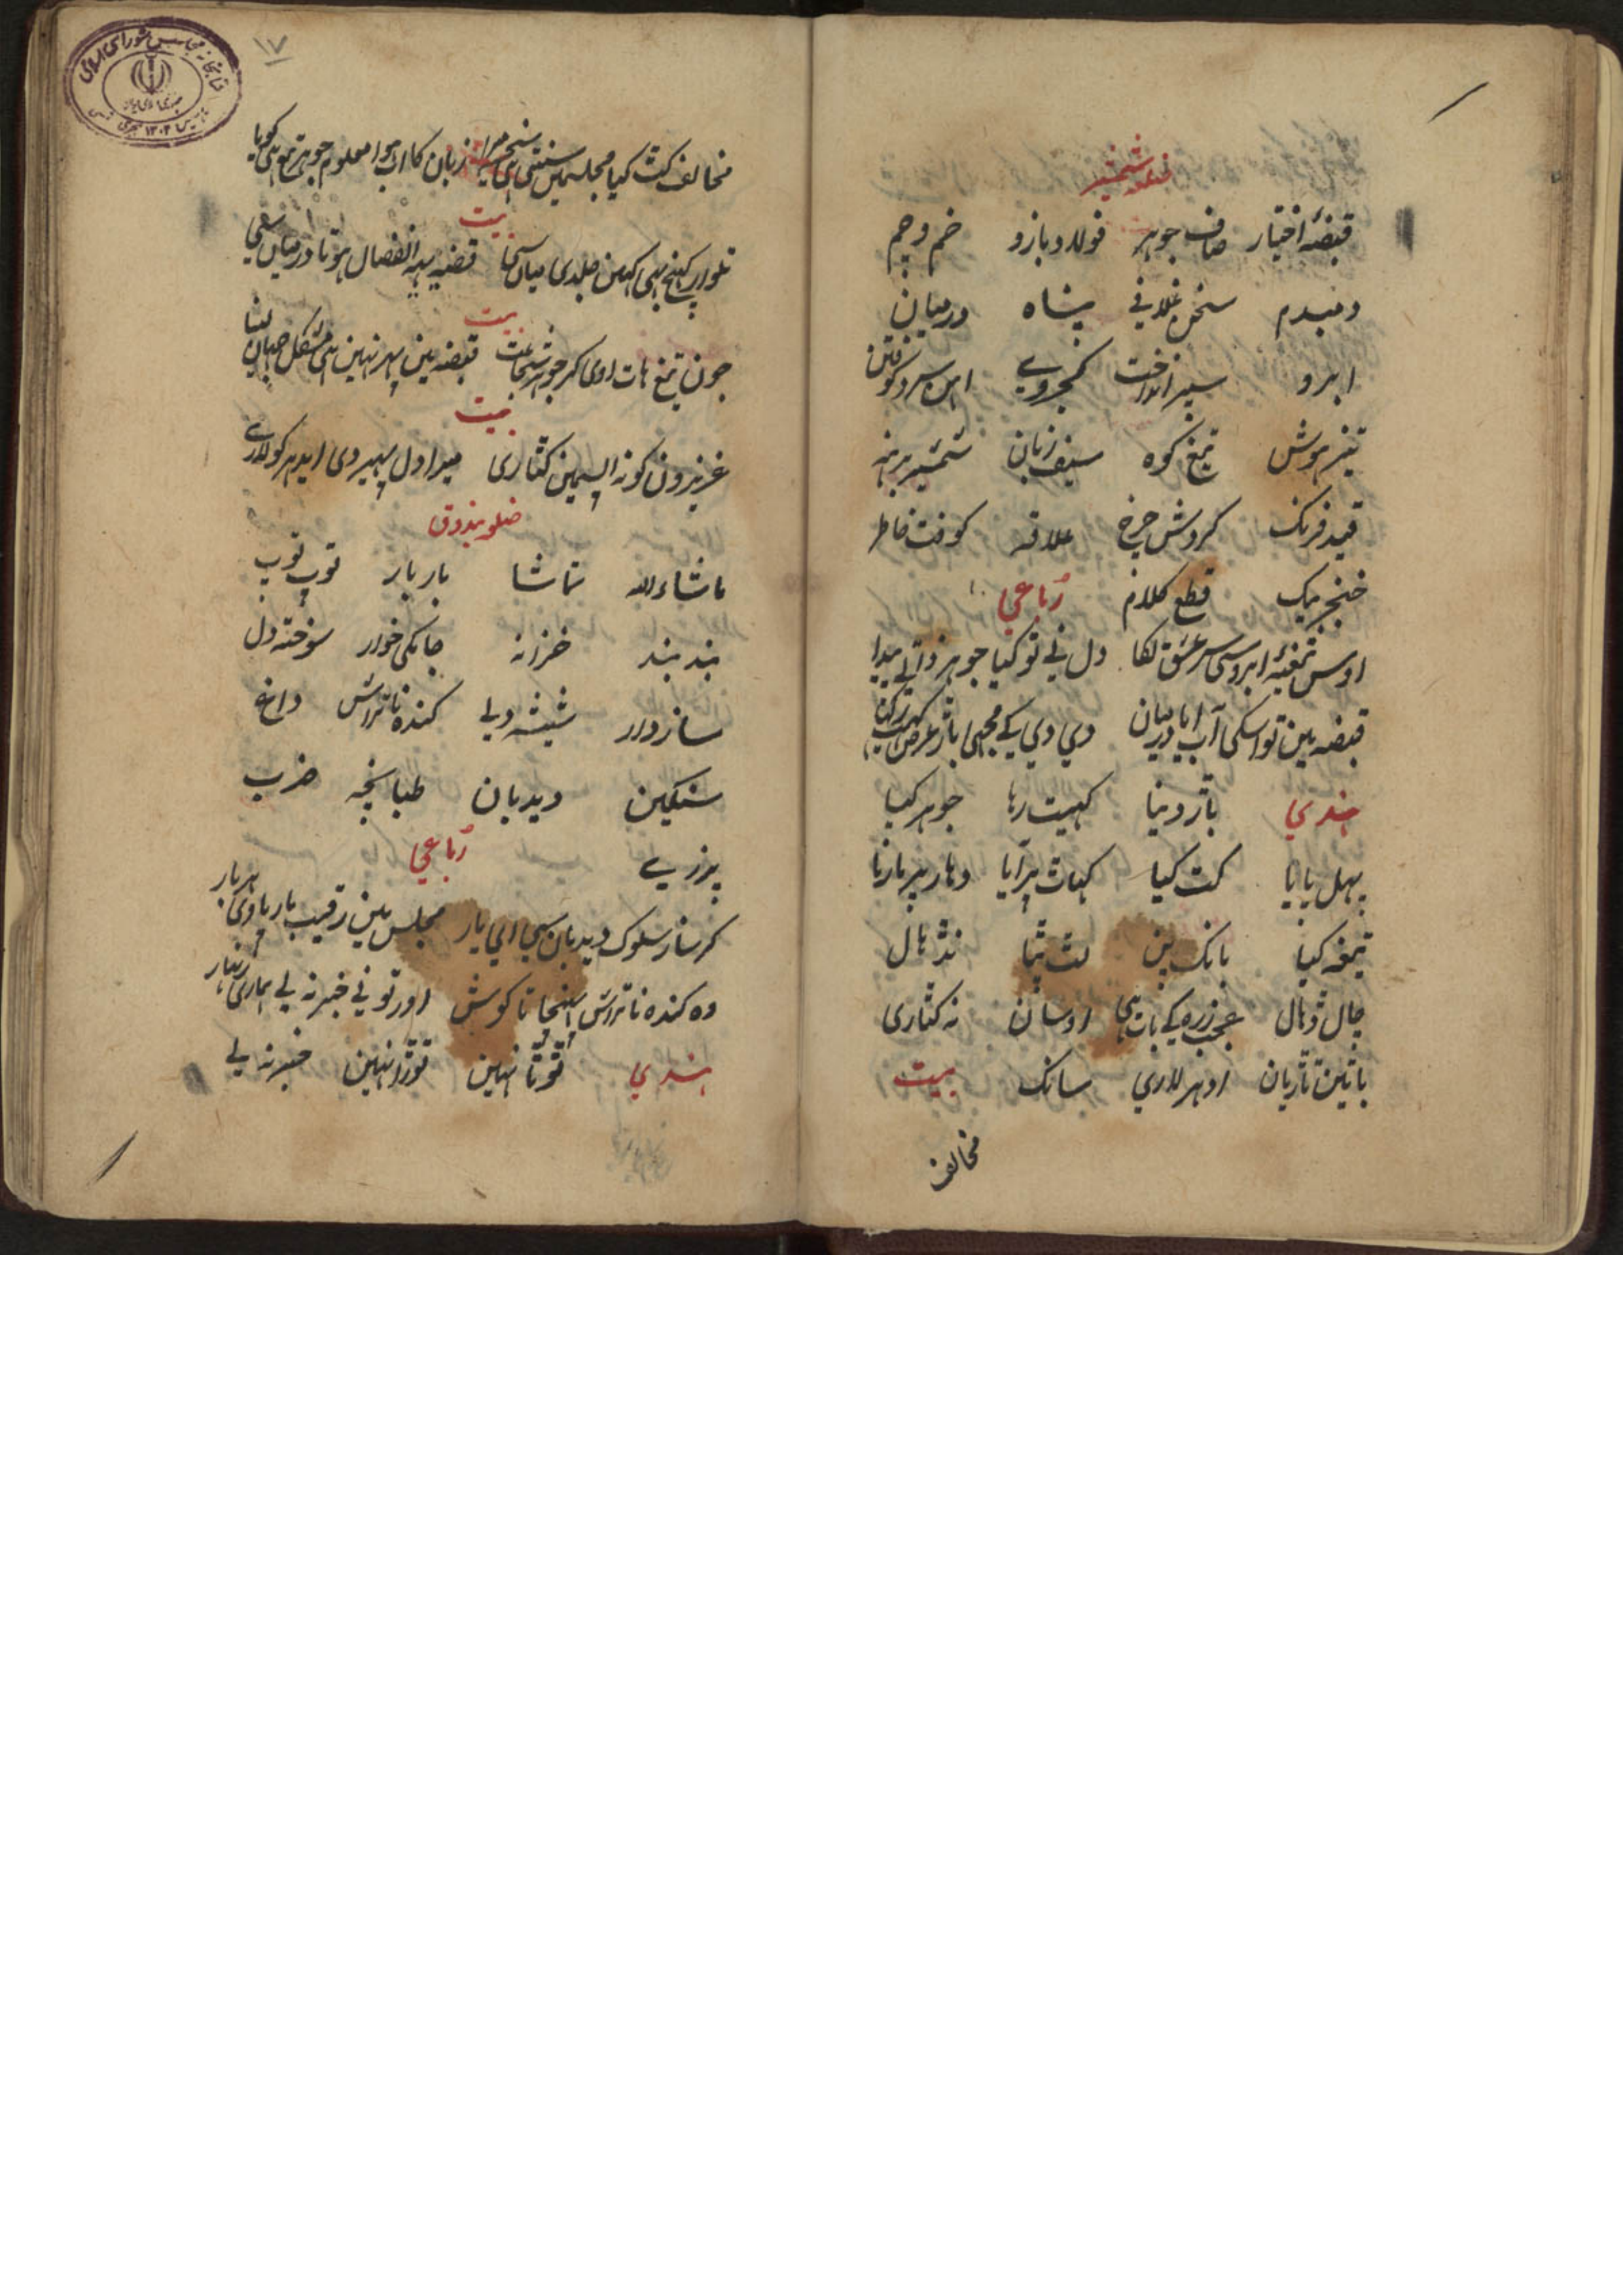 ضلع شمشیر
قبضهٔ اختیار صاف جوهر فولاد بازو خم و چم
دمبدم سخن غلافی پناه درمیان
ابرو سپر انداخت کجروے اہن سرد کوفتن
تیز هوش تیغ کوه سیف زبان شمشیر برهنه
قید فرنک کردش چرخ علاقه کوفت خاطر
خنجر بیک قطع کلام رُباعی
اوس تیغهٔ ابروسی سر عشق لکا دل نی تو کیا جوهر ذاتی پیدا
قبضه مین تو اسکی آب ایا درمیان دی دی کی مجهی باڑ
هندی باڑ دینا کهیت رہا جوهر کیا
پهل پایا کٹ کیا کهاٹ پر آیا دهار پر مارنا
تیغه کیا بانک پن لٹ پٹا نڈهال
چال ڈهال عجب زره کی بات هی اوسان نه کٹاری
باٹین تاڑیان اودهر لاری سانک بیت
مخالف
۱۷
مخالف کٹ کیا مجلسمین سنتی هی سخن میرا زبان کا اب هوا معلوم جوهر تیغ هی کویا
بیت
تلوار کهنچ هی کهین جلدی میان سی قضیه یه انفصال هو تا درمیان سی
بیت
جون تیغ هات اوی اکر جوهر شجاعت قبضه مین پهر نهین هی مشکل جهان لینا
بیت
عزیزون کو نه اپسمین کٹاری میرا دل پهیر دی ایدهر کو لاری
ضلع بندوق
ماشاءالله تماشا بار بار توپ توپ
بند بند خزانه جانکی خوار سوخته دل
سازدار شیشه دلی کنده ناتراش داغ
سنکین دیدبان طبانچه ضرب
پرزے رُباعی
کر ساز سلوک دیدبان سی ای یار مجلس مین رقیب بار پاوی هر بار
وه کنده ناتراش اینجا تا کوش اور تو نی خبر نه لی هماری زنهار
هندی ٹوٹا نهین توڑا نهین خبر نه لی